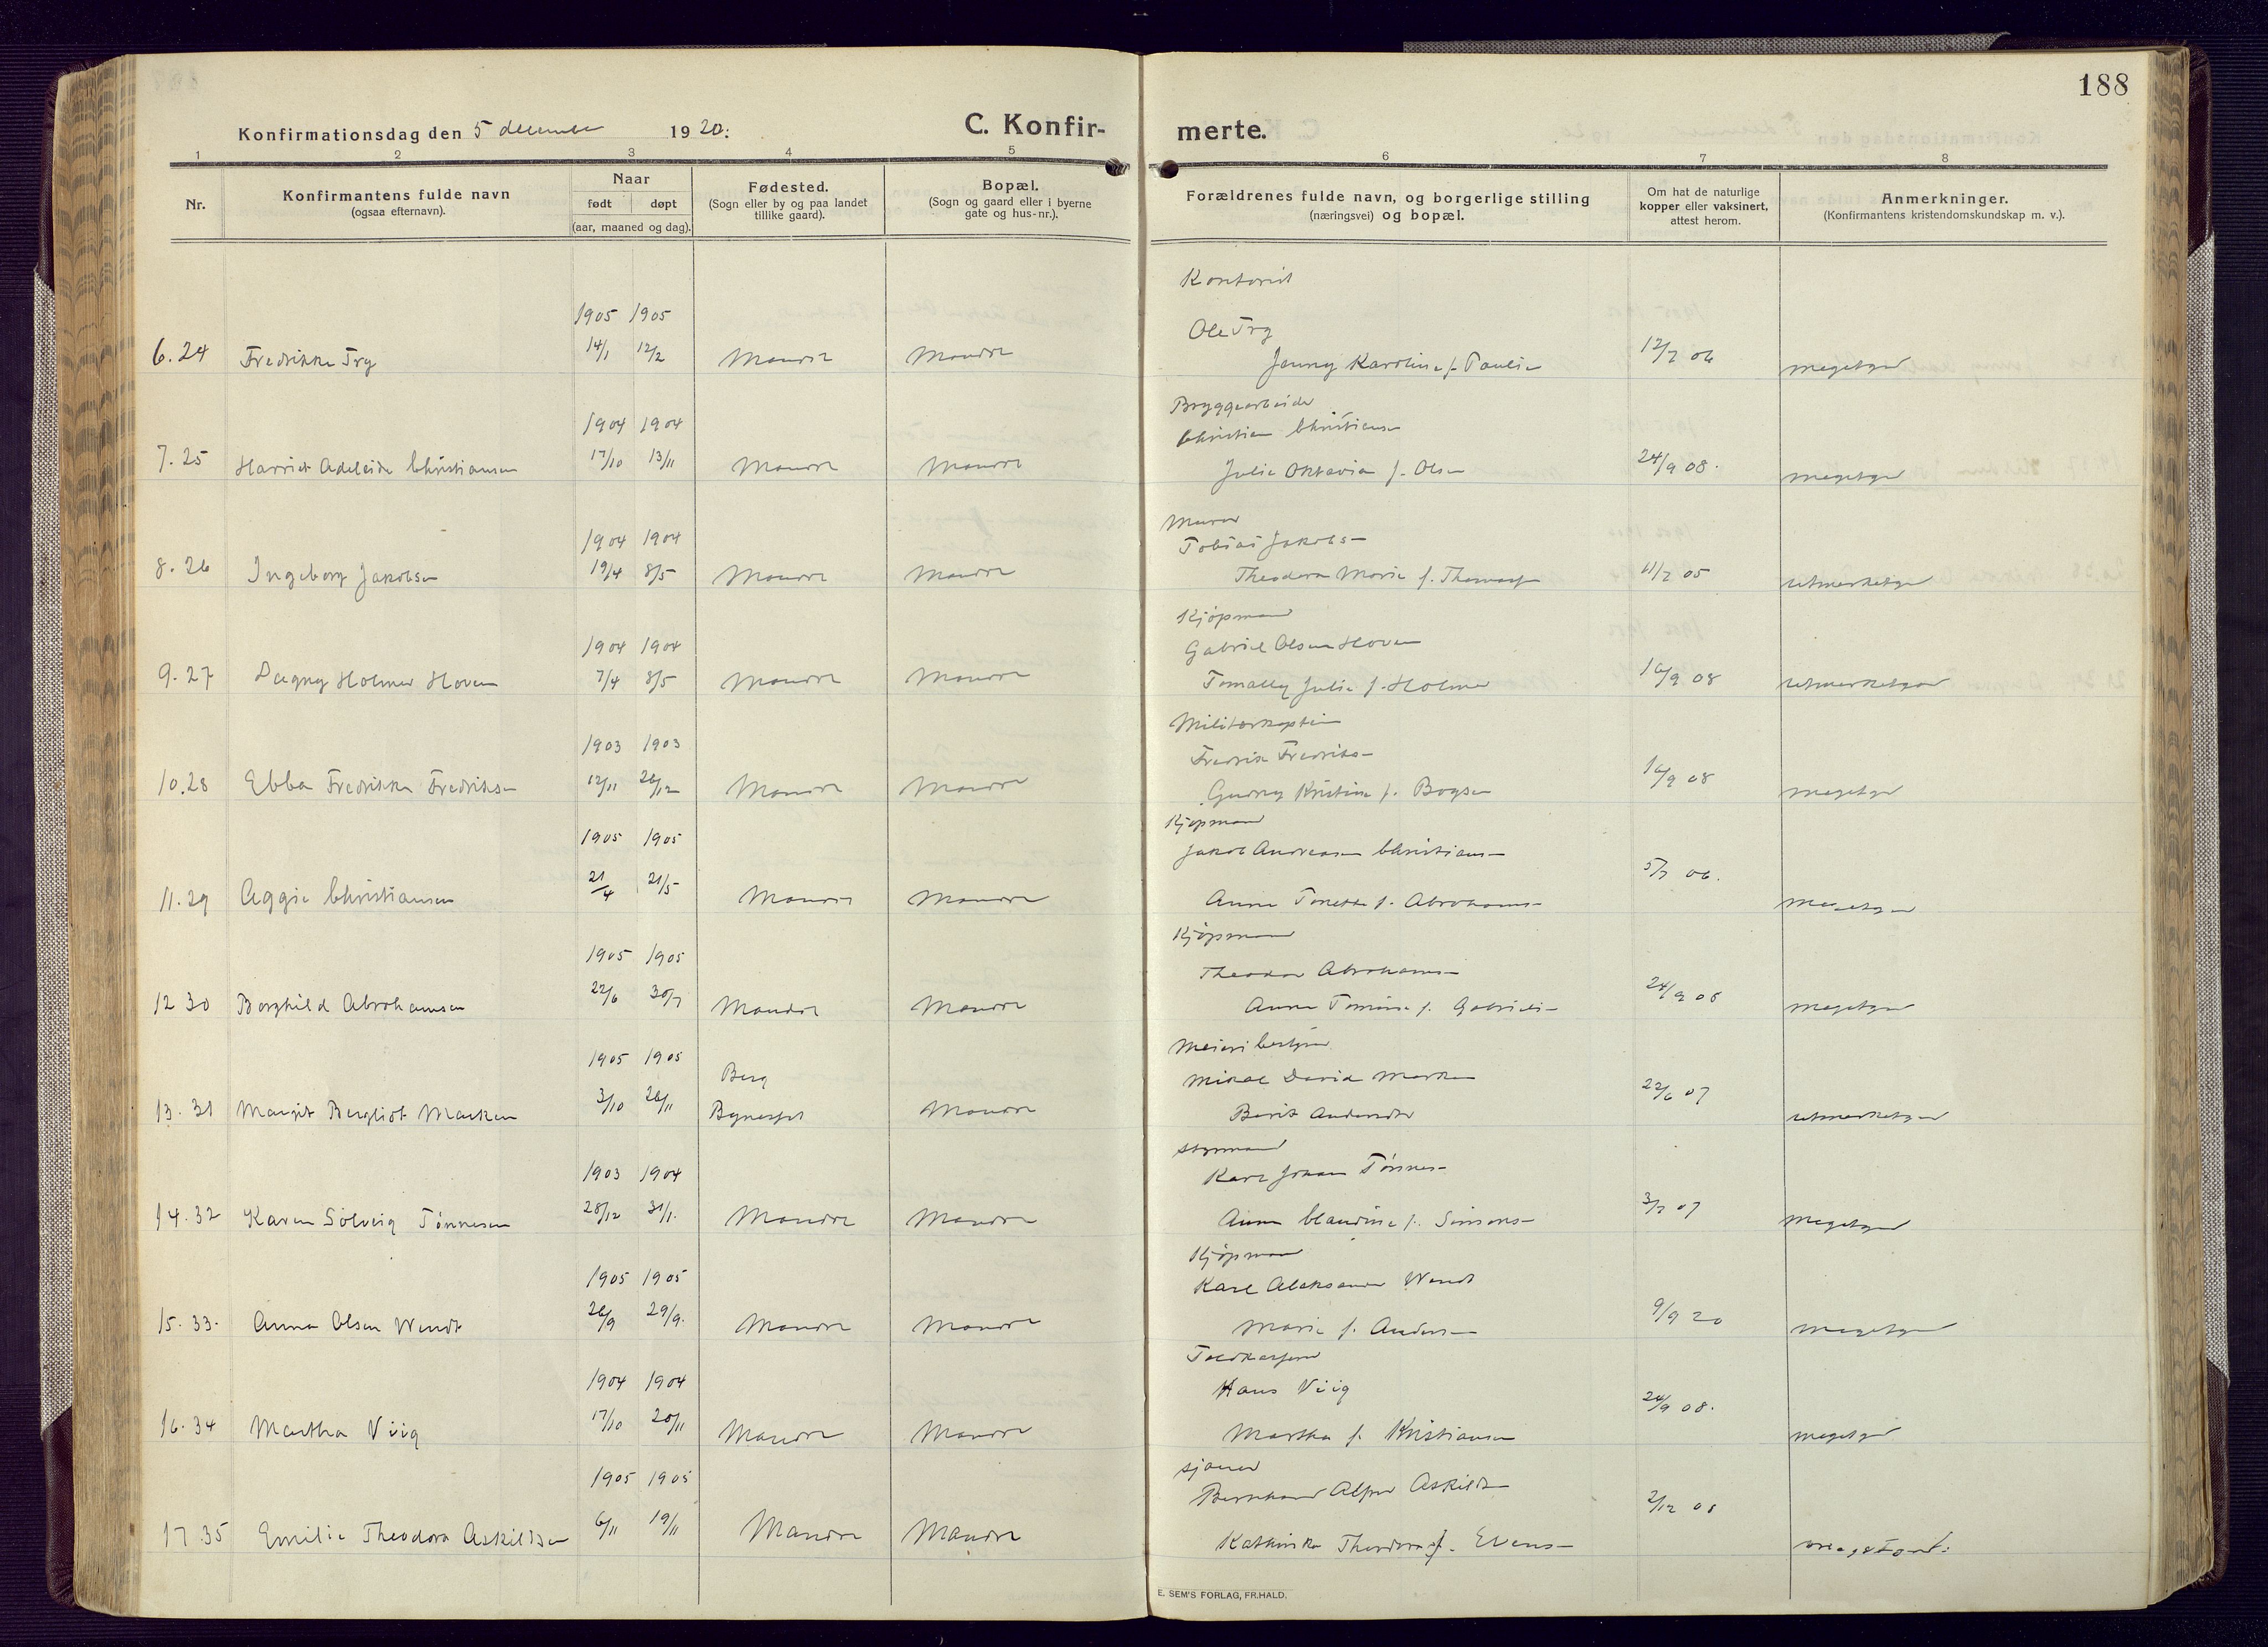 188
Konfirmationsdag den 5 december 1920:
C. Konfir-
merte.
1 2 3 4 5 6 7 8
Nr.
Konfirmantens fulde navn
(ogsaa efternavn).
Naar
født døpt
(aar, maaned og dag).
Fødested.
(Sogn eller by og paa landet
tillike gaard).
Bopæl.
(Sogn og gaard eller i byerne
gate og hus-nr.).
Forældrenes fulde navn, og borgerlige stilling
(næringsvei) og bopæl.
Om hat de naturlige
kopper eller vaksinert,
attest herom.
Anmerkninger.
(Konfirmantens kristendomskundskap m. v.).
Kontorist
1905 1905
Ole Fry
6.24 Fredrikke Fry 14/1 12/2 Mandal Mandal
Jenny Karoline f. Paulsen 12/7 06 megetgod
Bryggearbeider
1904 1904
Christian Christiansen
7.25 Harriet Adeleide Christiansen 17/10 13/11 Mandal Mandal
Julie Oktavia f. Olsen 24/9 08. megetgod
Murer
1904 1904
Tobias Jakobsen
8.26 Ingeborg Jakobsen 19/4 8/5 Mandal Mandal
Theodora Marie f. Thomassen 11/7 05 utmerketgod
Kjöpmand
1904 1904
Gabriel Olsen Hoven
9.27 Dagny Holmer Hoven 7/4 8/5 Mandal Mandal
Tomally Julie f. Holmer 16/9 08 utmerketgod
Militærkaptein
1903 1903
Fredrik Fredriksen
10.28 Ebba Fredrikke Fredriksen 12/11 26/12 Mandal Mandal
Gudrny Kristine f. Bogsen 16/9 08 megetgod
Kjøpmand
1905 1905
Jakob Andreasen Christiansen
11.29 Aggie Christiansen 21/4 21/5 Mandal Mandal
Anna Tonette f. Abrahamsen 5/7 06. megetgod
Kjöpmand
1905 1905
Theodor Abrahamsen
12 30 Borghild Abrahamsen 22/6 30/7 Mandal Mandal
Anna Tomine f. Gabrielsen 24/9 08 megetgod
Meieribestyrer
1905 1905
Berg
Mikal David Marken
13.31 Margit Bergliot Marken 3/10 26/11 Bynesset Mandal
Berit Andersdtr 22/6 07 utmerketgod
Styrmand
1903 1904
Karl Johan Tönnesen
14.32 Karen Solveig Tönnesen 28/12 31/1. Mandal Mandal
Anna Claudine f. Simonsen 3/7 07 megetgod
Kjöpmand
1905 1905
Karl Aleksander Wendt
15.33. Anna Olsen Wendt 26/9 29/9. Mandal Mandal
Marie f. Andersen 9/9 20 megetgod
Toldkasserer
1904 1904
Hans Viig
16.34 Martha Viig 17/10 20/11 Mandal Mandal
Martha f. Kristiansen 24/9 08. megetgod
Sjauer
1905 1905
Bernhard Alfred Askildsen
17.35 Emilie Theodora Askildsen 6/11 19/11 Mandal Mandal
Kathinka Theodora f. Evensen 2/12 08
E. SEM'S FORLAG, FR.HALD.